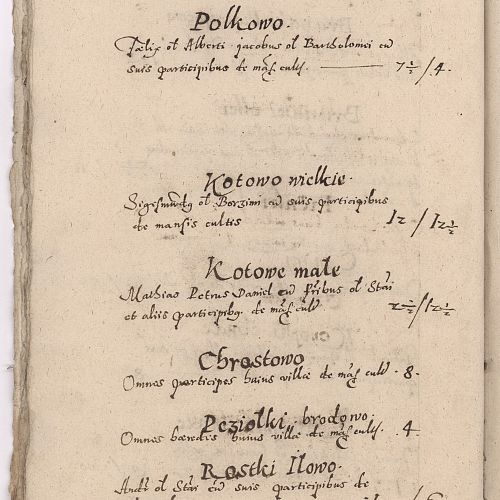 Polkowo.
Fælix ol Alberti. jacobus ol Bartholomei cū
suis participibus de mās. cults. 7½ / 4.
Kotowo wielkie.
Sigesmūdg ol Borzim cū suis participibus
de mansis cultis 12 / 12½
Kotowe małe
Mathias Petrus Daniel cū ol Star
et aliis participibg de mās cult /12½
Chrostowo
Omnes participes huius villæ de mās cult. 8.
Peziołki brodowo.
Omnes hæredes huius villæ de mās cults. 4.
Rostki Ilowo.
Andr ol Star cū suis participibus de